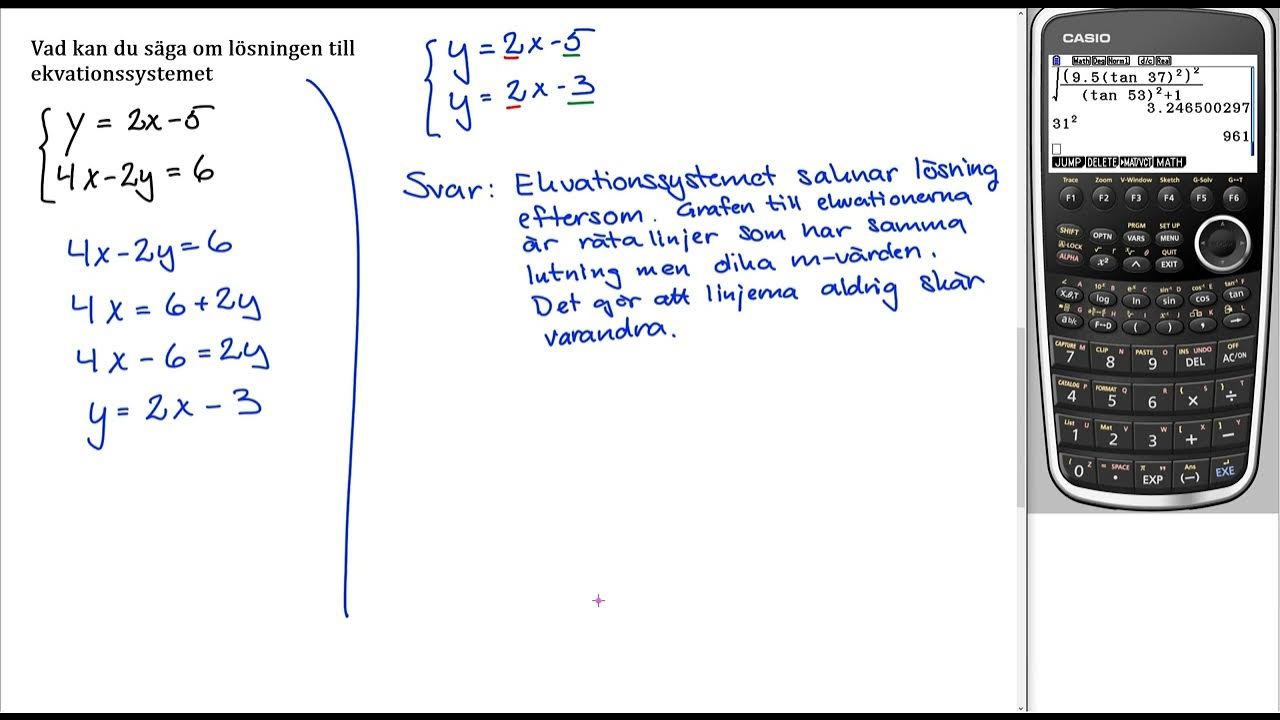 Vad kan du säga om lösningen till
ekvationssystemet
y = 2x-5
4x-2y = 6
4x-2y=6
4x = 6+2y
4x-6 = 2y
y = 2x-3
y = 2x-5
y = 2x-3
Svar: Ekvationssystemet saknar lösning
eftersom. Grafen till ekvationerna
är räta linjer som har samma
lutning men olika m-värden.
Det gör att linjerna aldrig skär
varandra.
CASIO
Math Deg Norm1 d/c Real
√((9.5(tan 37)²)²
(tan 53)²+1
3.246500297
31²
961
JUMP DELETE ▸MAT/VCT MATH
Trace Zoom V-Window Sketch G-Solv G↔T
F1 F2 F3 F4 F5 F6
SHIFT OPTN PRGM VARS SET UP MENU
A-LOCK ALPHA x² ^ QUIT EXIT
X,θ,T log ln sin cos tan
ab/c F↔D ( ) , →
CAPTURE M CLIP N PASTE O INS UNDO OFF
7 8 9 DEL AC/ON
CATALOG P FORMAT Q R { S } T
4 5 6 × ÷
List U Mat V W [ X ] Y
1 2 3 + −
i Z = SPACE π " Ans
0 . EXP (−) EXE